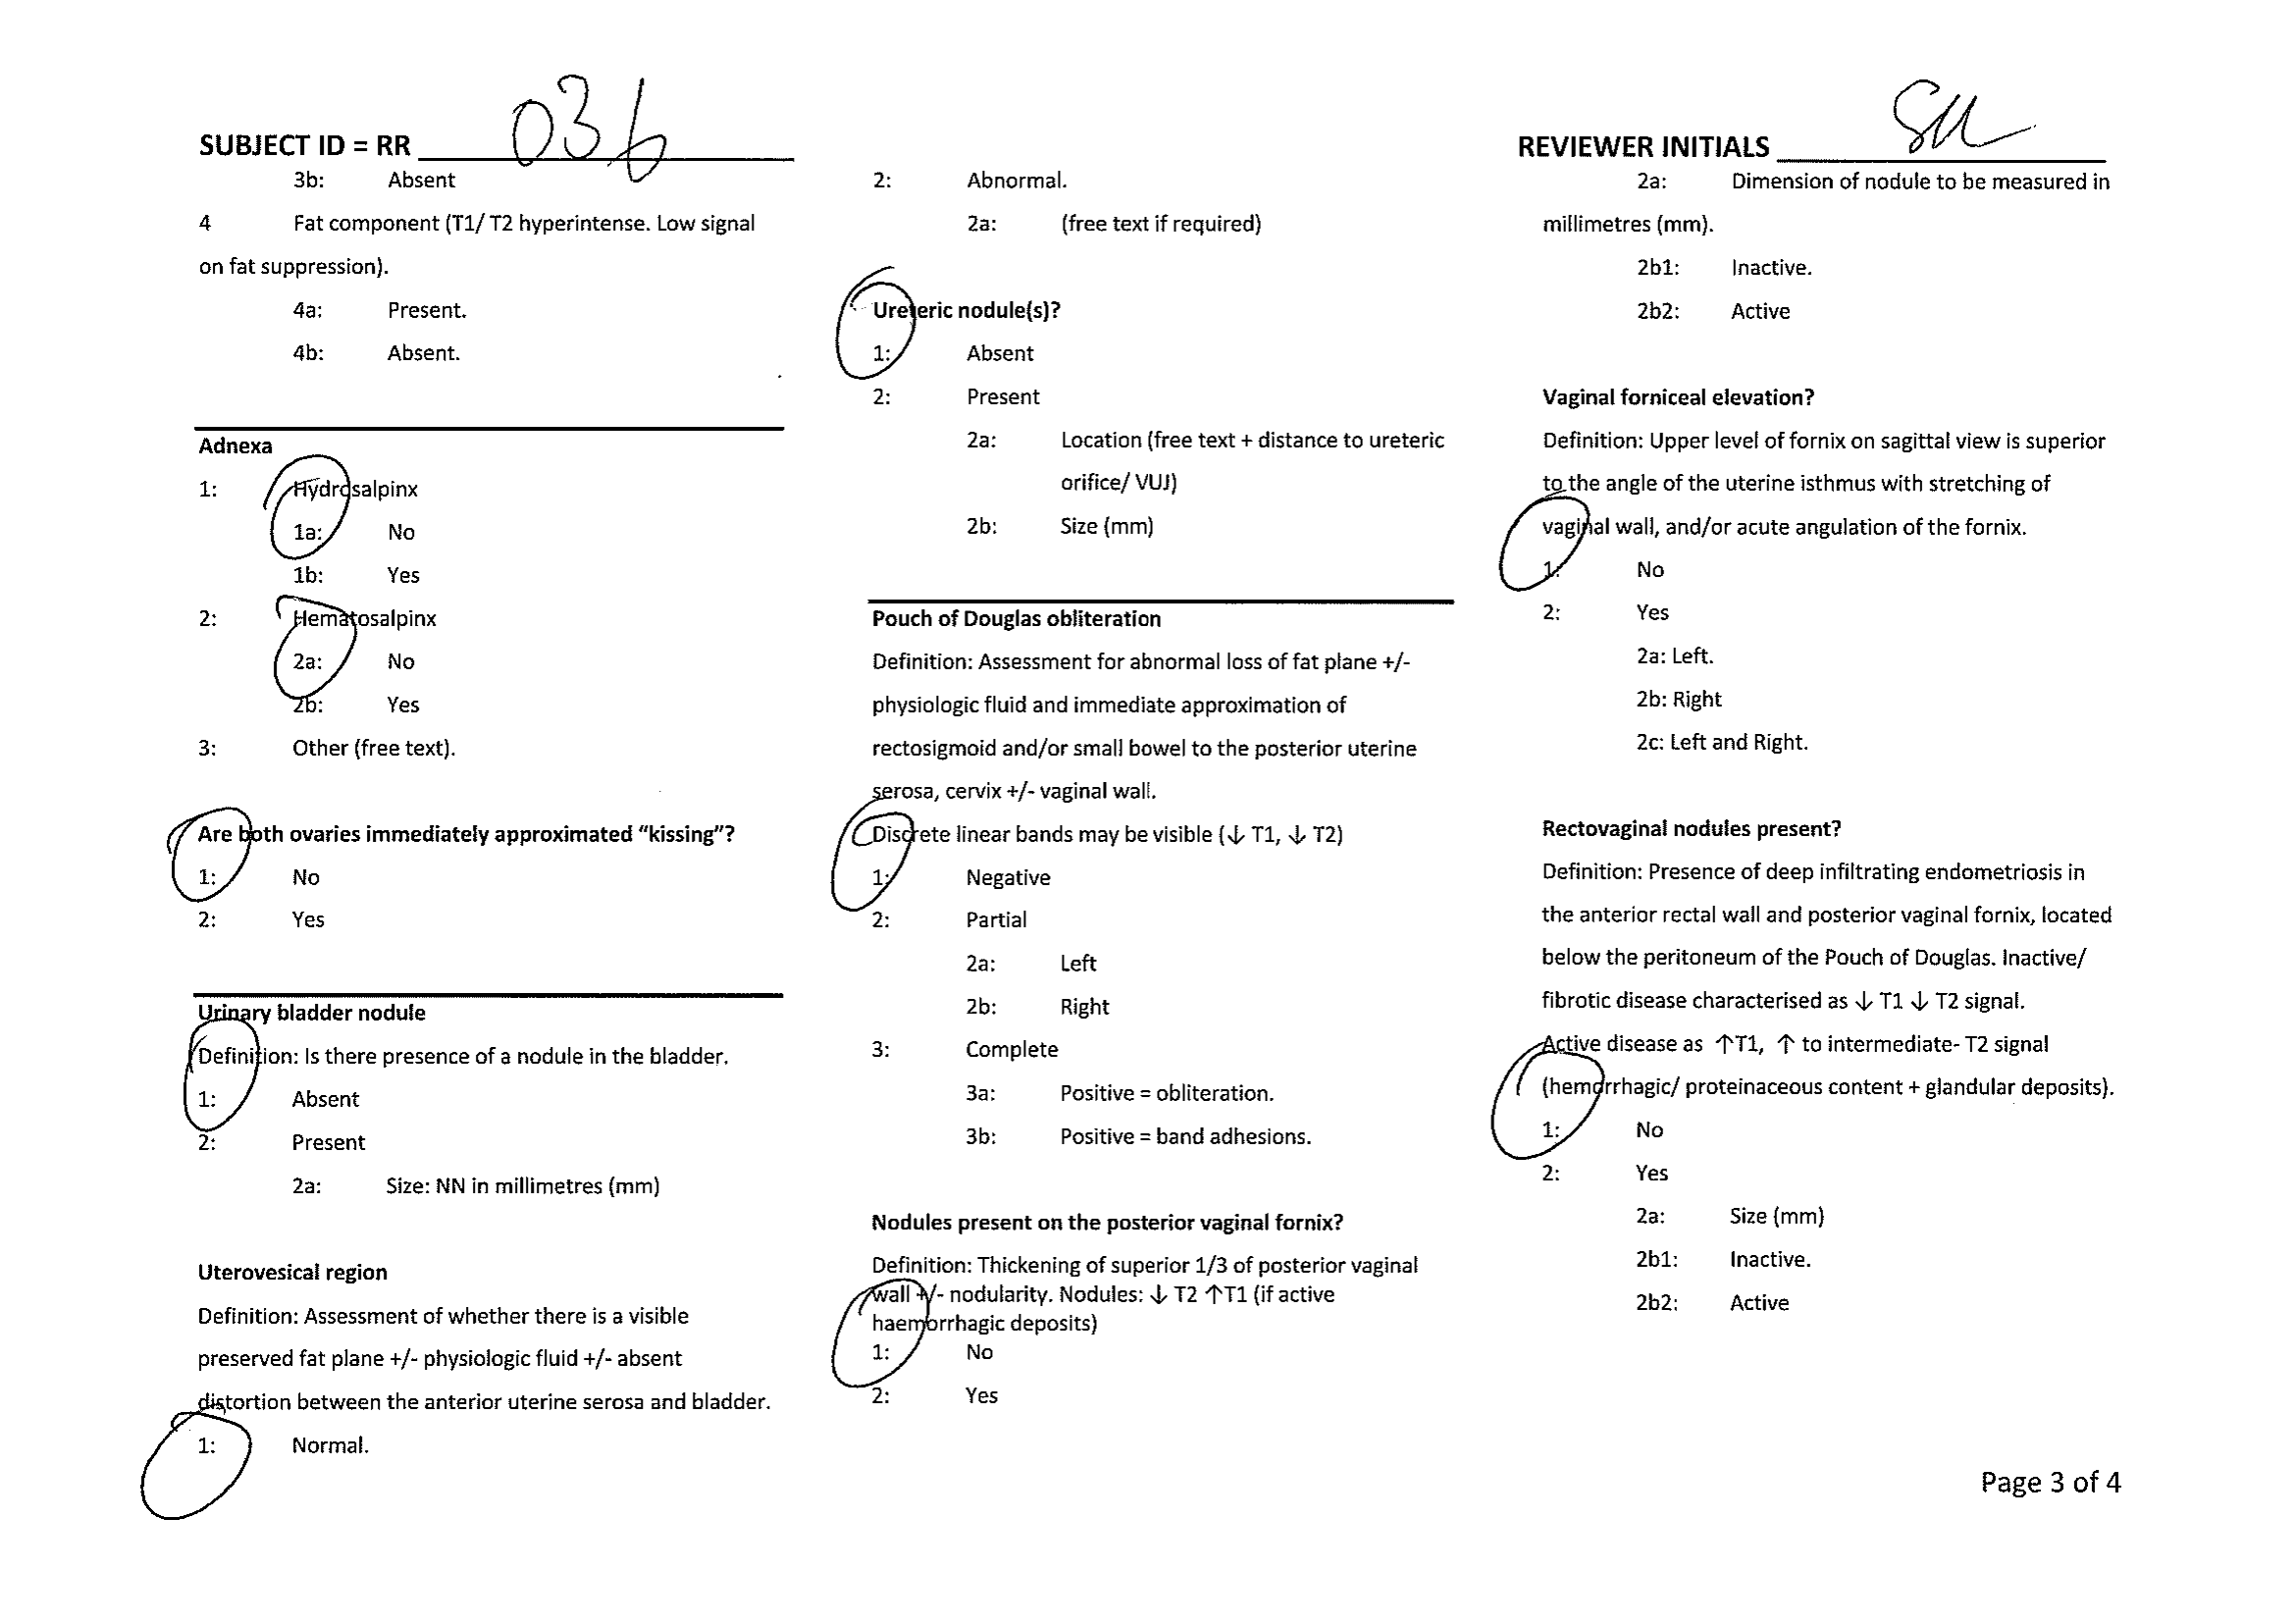 SUBJECT ID = RR 036
REVIEWER INITIALS SM
3b: Absent
4 Fat component (T1/ T2 hyperintense. Low signal
on fat suppression).
4a: Present.
4b: Absent.
Adnexa
1: Hydrosalpinx
1a: No
1b: Yes
2: Hematosalpinx
2a: No
2b: Yes
3: Other (free text).
Are both ovaries immediately approximated “kissing”?
1: No
2: Yes
Urinary bladder nodule
Definition: Is there presence of a nodule in the bladder.
1: Absent
2: Present
2a: Size: NN in millimetres (mm)
Uterovesical region
Definition: Assessment of whether there is a visible
preserved fat plane +/- physiologic fluid +/- absent
distortion between the anterior uterine serosa and bladder.
1: Normal.
2: Abnormal.
2a: (free text if required)
Ureteric nodule(s)?
1: Absent
2: Present
2a: Location (free text + distance to ureteric
orifice/ VUJ)
2b: Size (mm)
Pouch of Douglas obliteration
Definition: Assessment for abnormal loss of fat plane +/-
physiologic fluid and immediate approximation of
rectosigmoid and/or small bowel to the posterior uterine
serosa, cervix +/- vaginal wall.
Discrete linear bands may be visible (↓ T1, ↓ T2)
1: Negative
2: Partial
2a: Left
2b: Right
3: Complete
3a: Positive = obliteration.
3b: Positive = band adhesions.
Nodules present on the posterior vaginal fornix?
Definition: Thickening of superior 1/3 of posterior vaginal
wall +/- nodularity. Nodules: ↓ T2 ↑T1 (if active
haemorrhagic deposits)
1: No
2: Yes
2a: Dimension of nodule to be measured in
millimetres (mm).
2b1: Inactive.
2b2: Active
Vaginal forniceal elevation?
Definition: Upper level of fornix on sagittal view is superior
to the angle of the uterine isthmus with stretching of
vaginal wall, and/or acute angulation of the fornix.
1: No
2: Yes
2a: Left.
2b: Right
2c: Left and Right.
Rectovaginal nodules present?
Definition: Presence of deep infiltrating endometriosis in
the anterior rectal wall and posterior vaginal fornix, located
below the peritoneum of the Pouch of Douglas. Inactive/
fibrotic disease characterised as ↓ T1 ↓ T2 signal.
Active disease as ↑T1, ↑ to intermediate- T2 signal
(hemorrhagic/ proteinaceous content + glandular deposits).
1: No
2: Yes
2a: Size (mm)
2b1: Inactive.
2b2: Active
Page 3 of 4